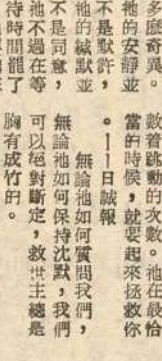 多麼奇異。
祂的安靜並
不是默許，
祂的緘默並
不是同意，
祂不過在等
待時間罷了
數着跳動的次數。祂在最恰
當的時候，就要起來拯救你
。——日誠報
無論祂如何質問我們，
無論祂如何保持沈默，我們
可以絕對斷定，救世主總是
胸有成竹的。